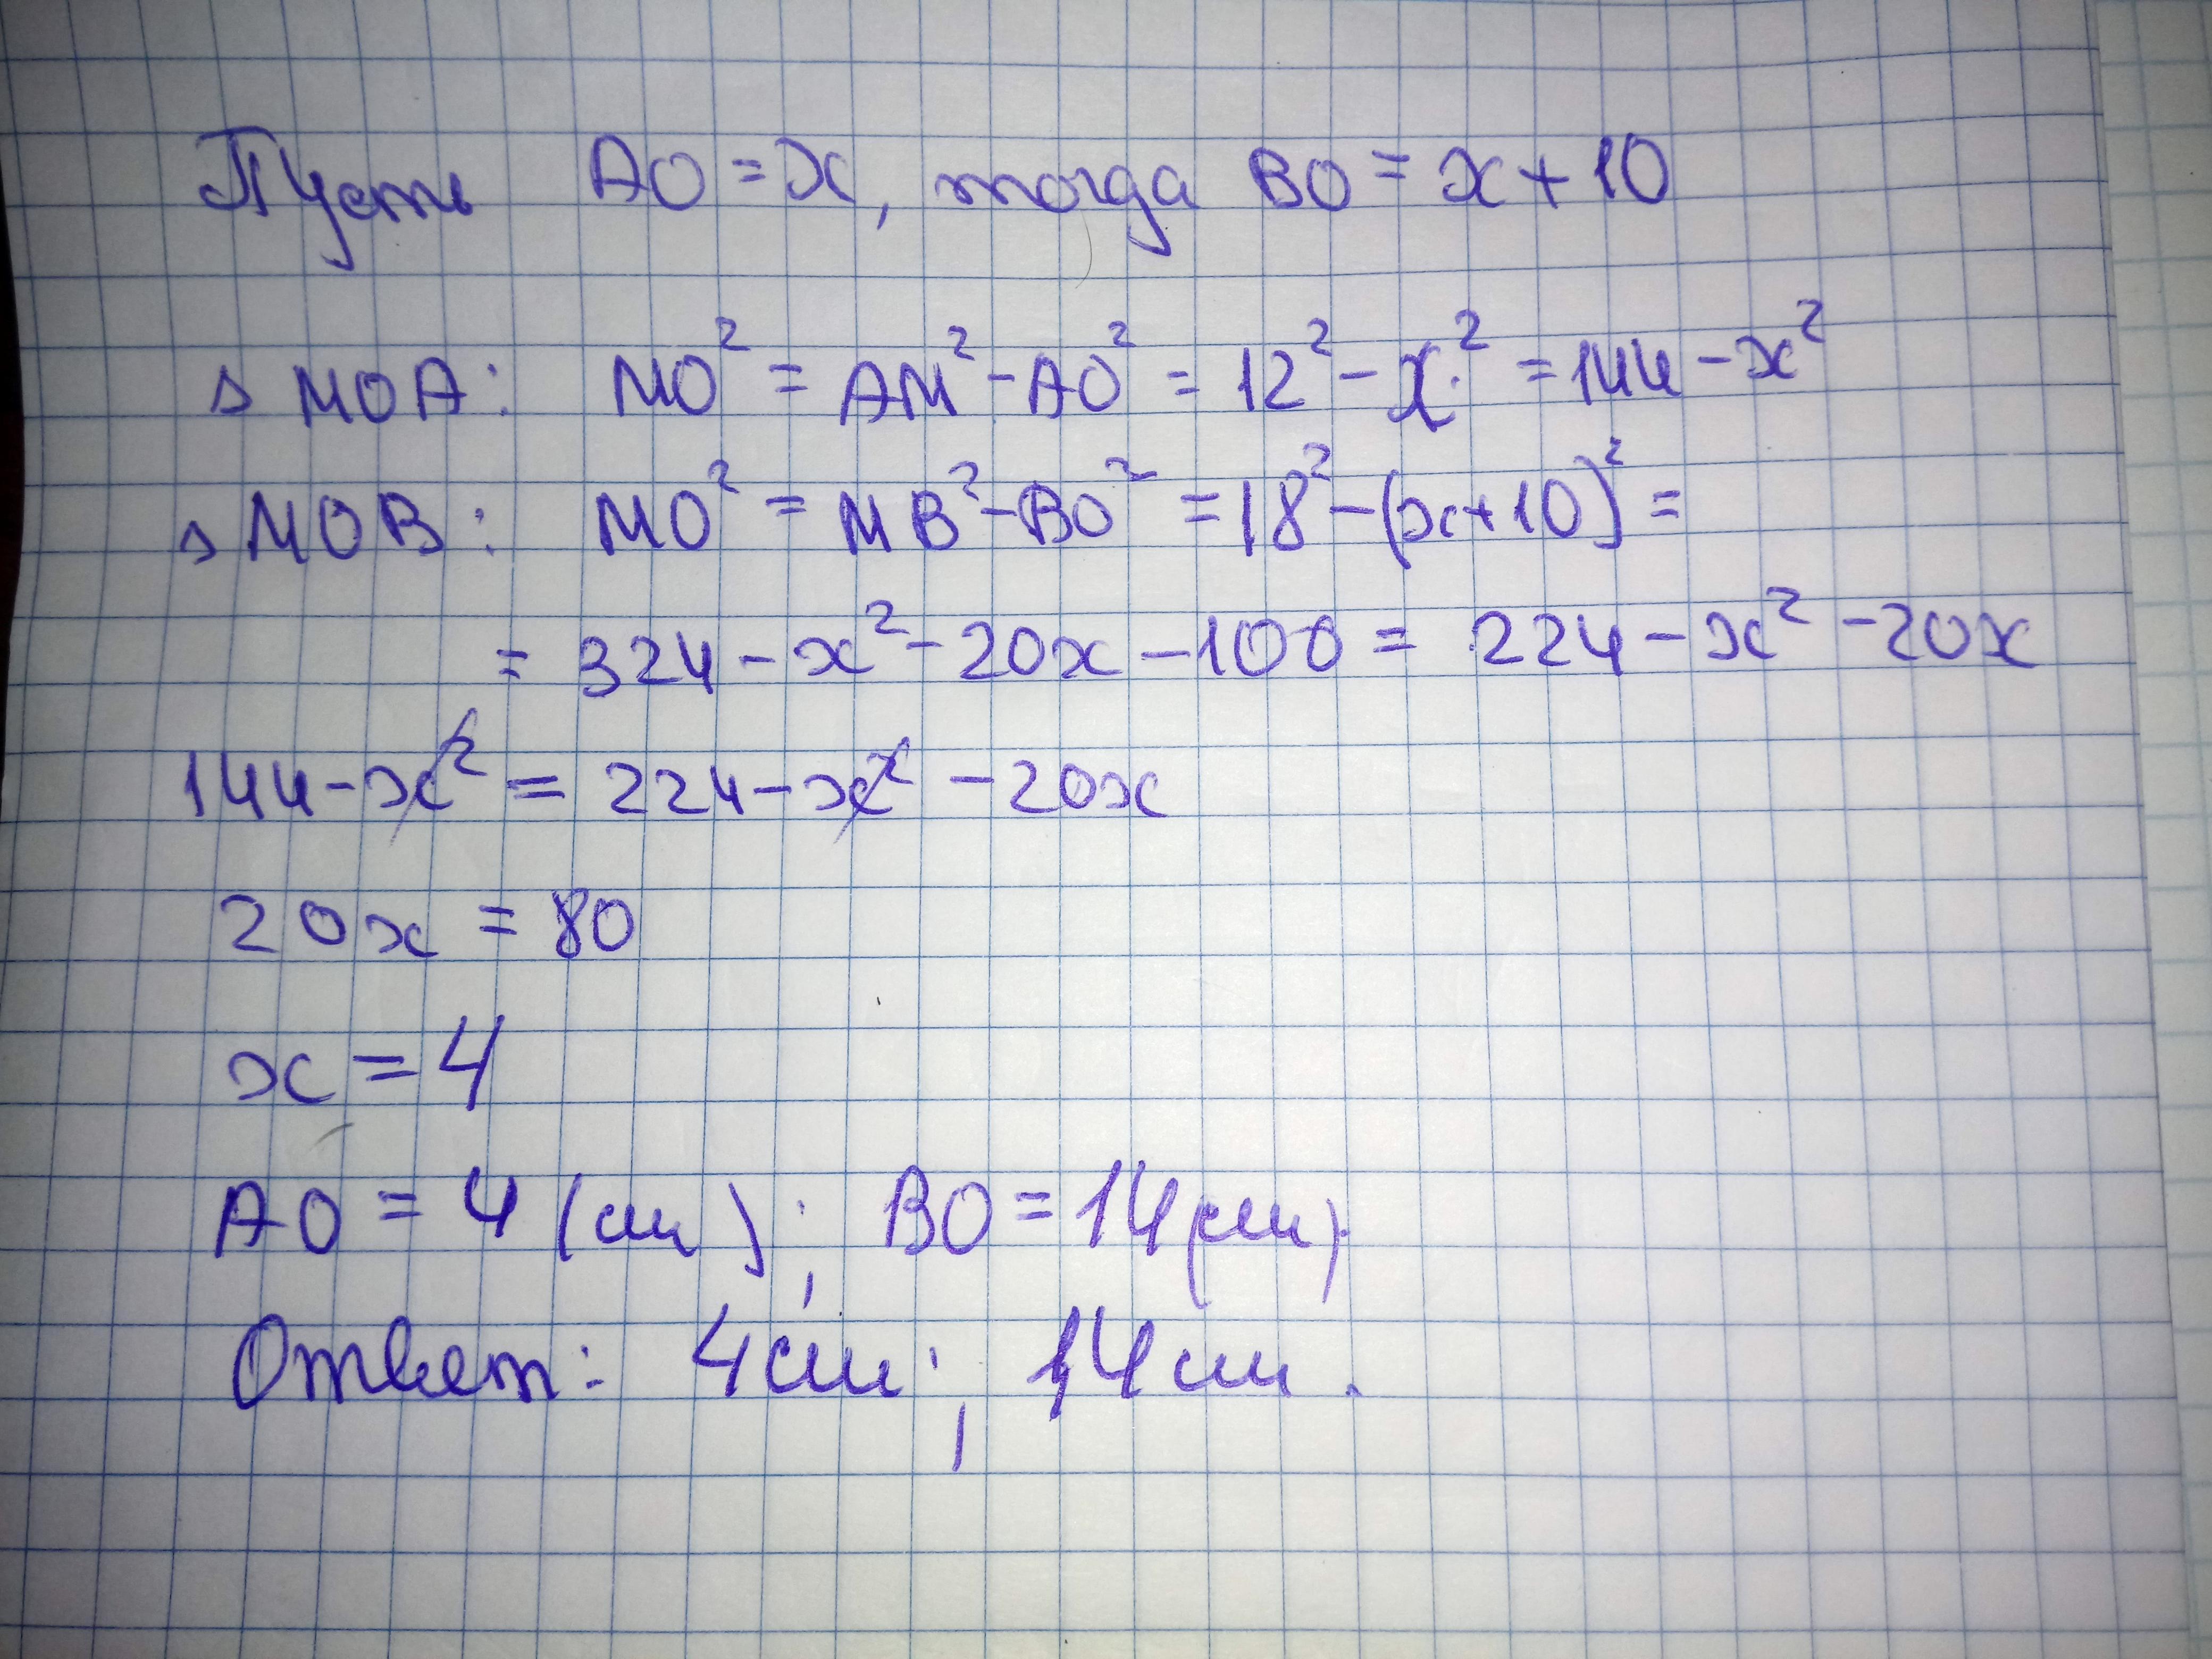 Пусть AO = x, тогда BO = x + 10
△ MOA: MO² = AM² - AO² = 12² - x² = 144 - x²
△ MOB: MO² = MB² - BO² = 18² - (x+10)² =
= 324 - x² - 20x - 100 = 224 - x² - 20x
144 - x² = 224 - x² - 20x
20x = 80
x = 4
AO = 4 (см); BO = 14 (см).
Ответ: 4 см; 14 см.